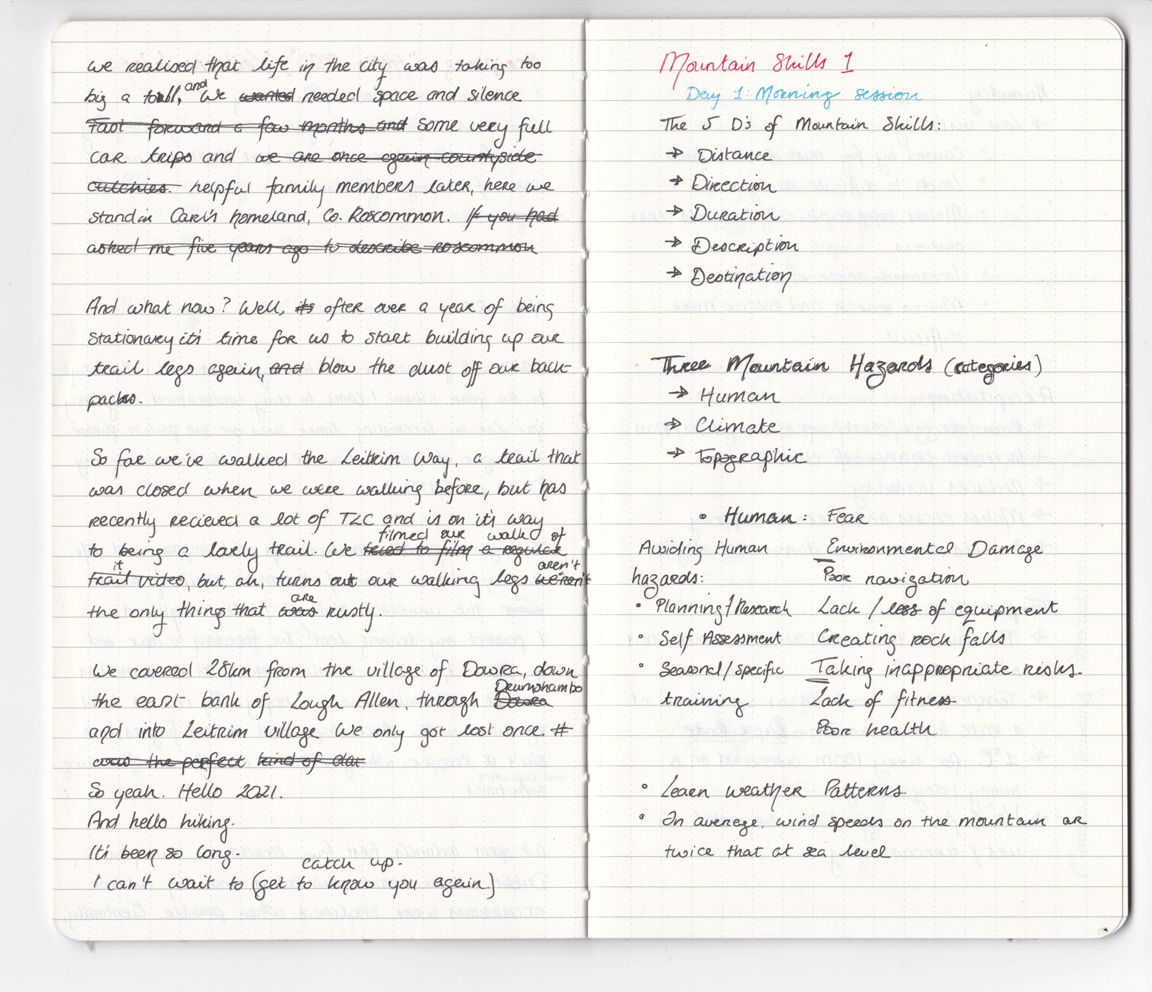 We realised that life in the city was taking too
big a toll, and we wanted needed space and silence
Fast forward a few months and some very full
car trips and we are once again countryside
cutchies. helpful family members later, here we
stand in Carl's homeland, Co. Roscommon. If you had
asked me five years ago to describe roscommon
And what now? Well, its after over a year of being
stationary it's time for us to start building up our
trail legs again, and blow the dust off our back-
packs.
So far we've walked the Leitrim Way, a trail that
was closed when we were walking before, but has
recently recieved a lot of TLC and is on it's way
filmed our walk of
to being a lovely trail. We tried to film a regular
it aren't
trail video, but, ah, turns out our walking legs weren't
are
the only things that was rusty.
We covered 28km from the village of Dowra, down
Drumshambo
the east bank of Lough Allen, through Dowra
and into Leitrim village We only got lost once. #
was the perfect kind of
So yeah. Hello 2021.
And hello hiking.
It's been so long.
catch up.
I can't wait to (get to know you again.)
Mountain Skills 1
Day 1 Morning session
The 5 D's of Mountain Skills:
→ Distance
→ Direction
→ Duration
→ Description
→ Destination
Three Mountain Hazards (categories)
→ Human
→ Climate
→ Topographic
• Human: Fear
Avoiding Human Environmental Damage
hazards: Poor navigation
• Planning/Research Lack / loss of equipment
• Self Assessment Creating rock falls
• Seasonal/specific Taking inappropriate risks.
training Lack of fitness
Poor health
• Learn weather Patterns.
• On average, wind speeds on the mountain are
twice that at sea level